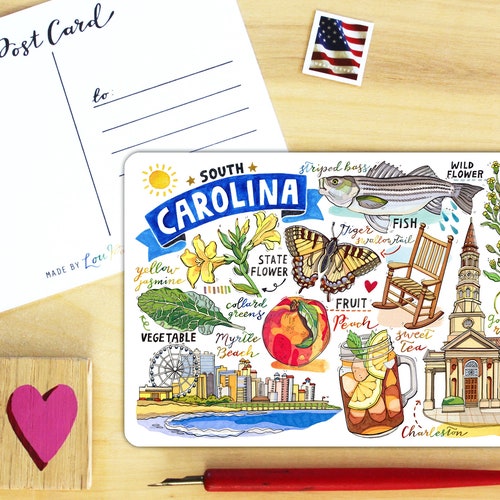 Post Card
to:
MADE BY
SOUTH
CAROLINA
striped bass
WILD
FLOWER
FISH
tiger
swallowtail
STATE
FLOWER
yellow
jasmine
collard
greens
VEGETABLE
FRUIT
Peach
Myrtle
Beach
sweet
tea
Charleston